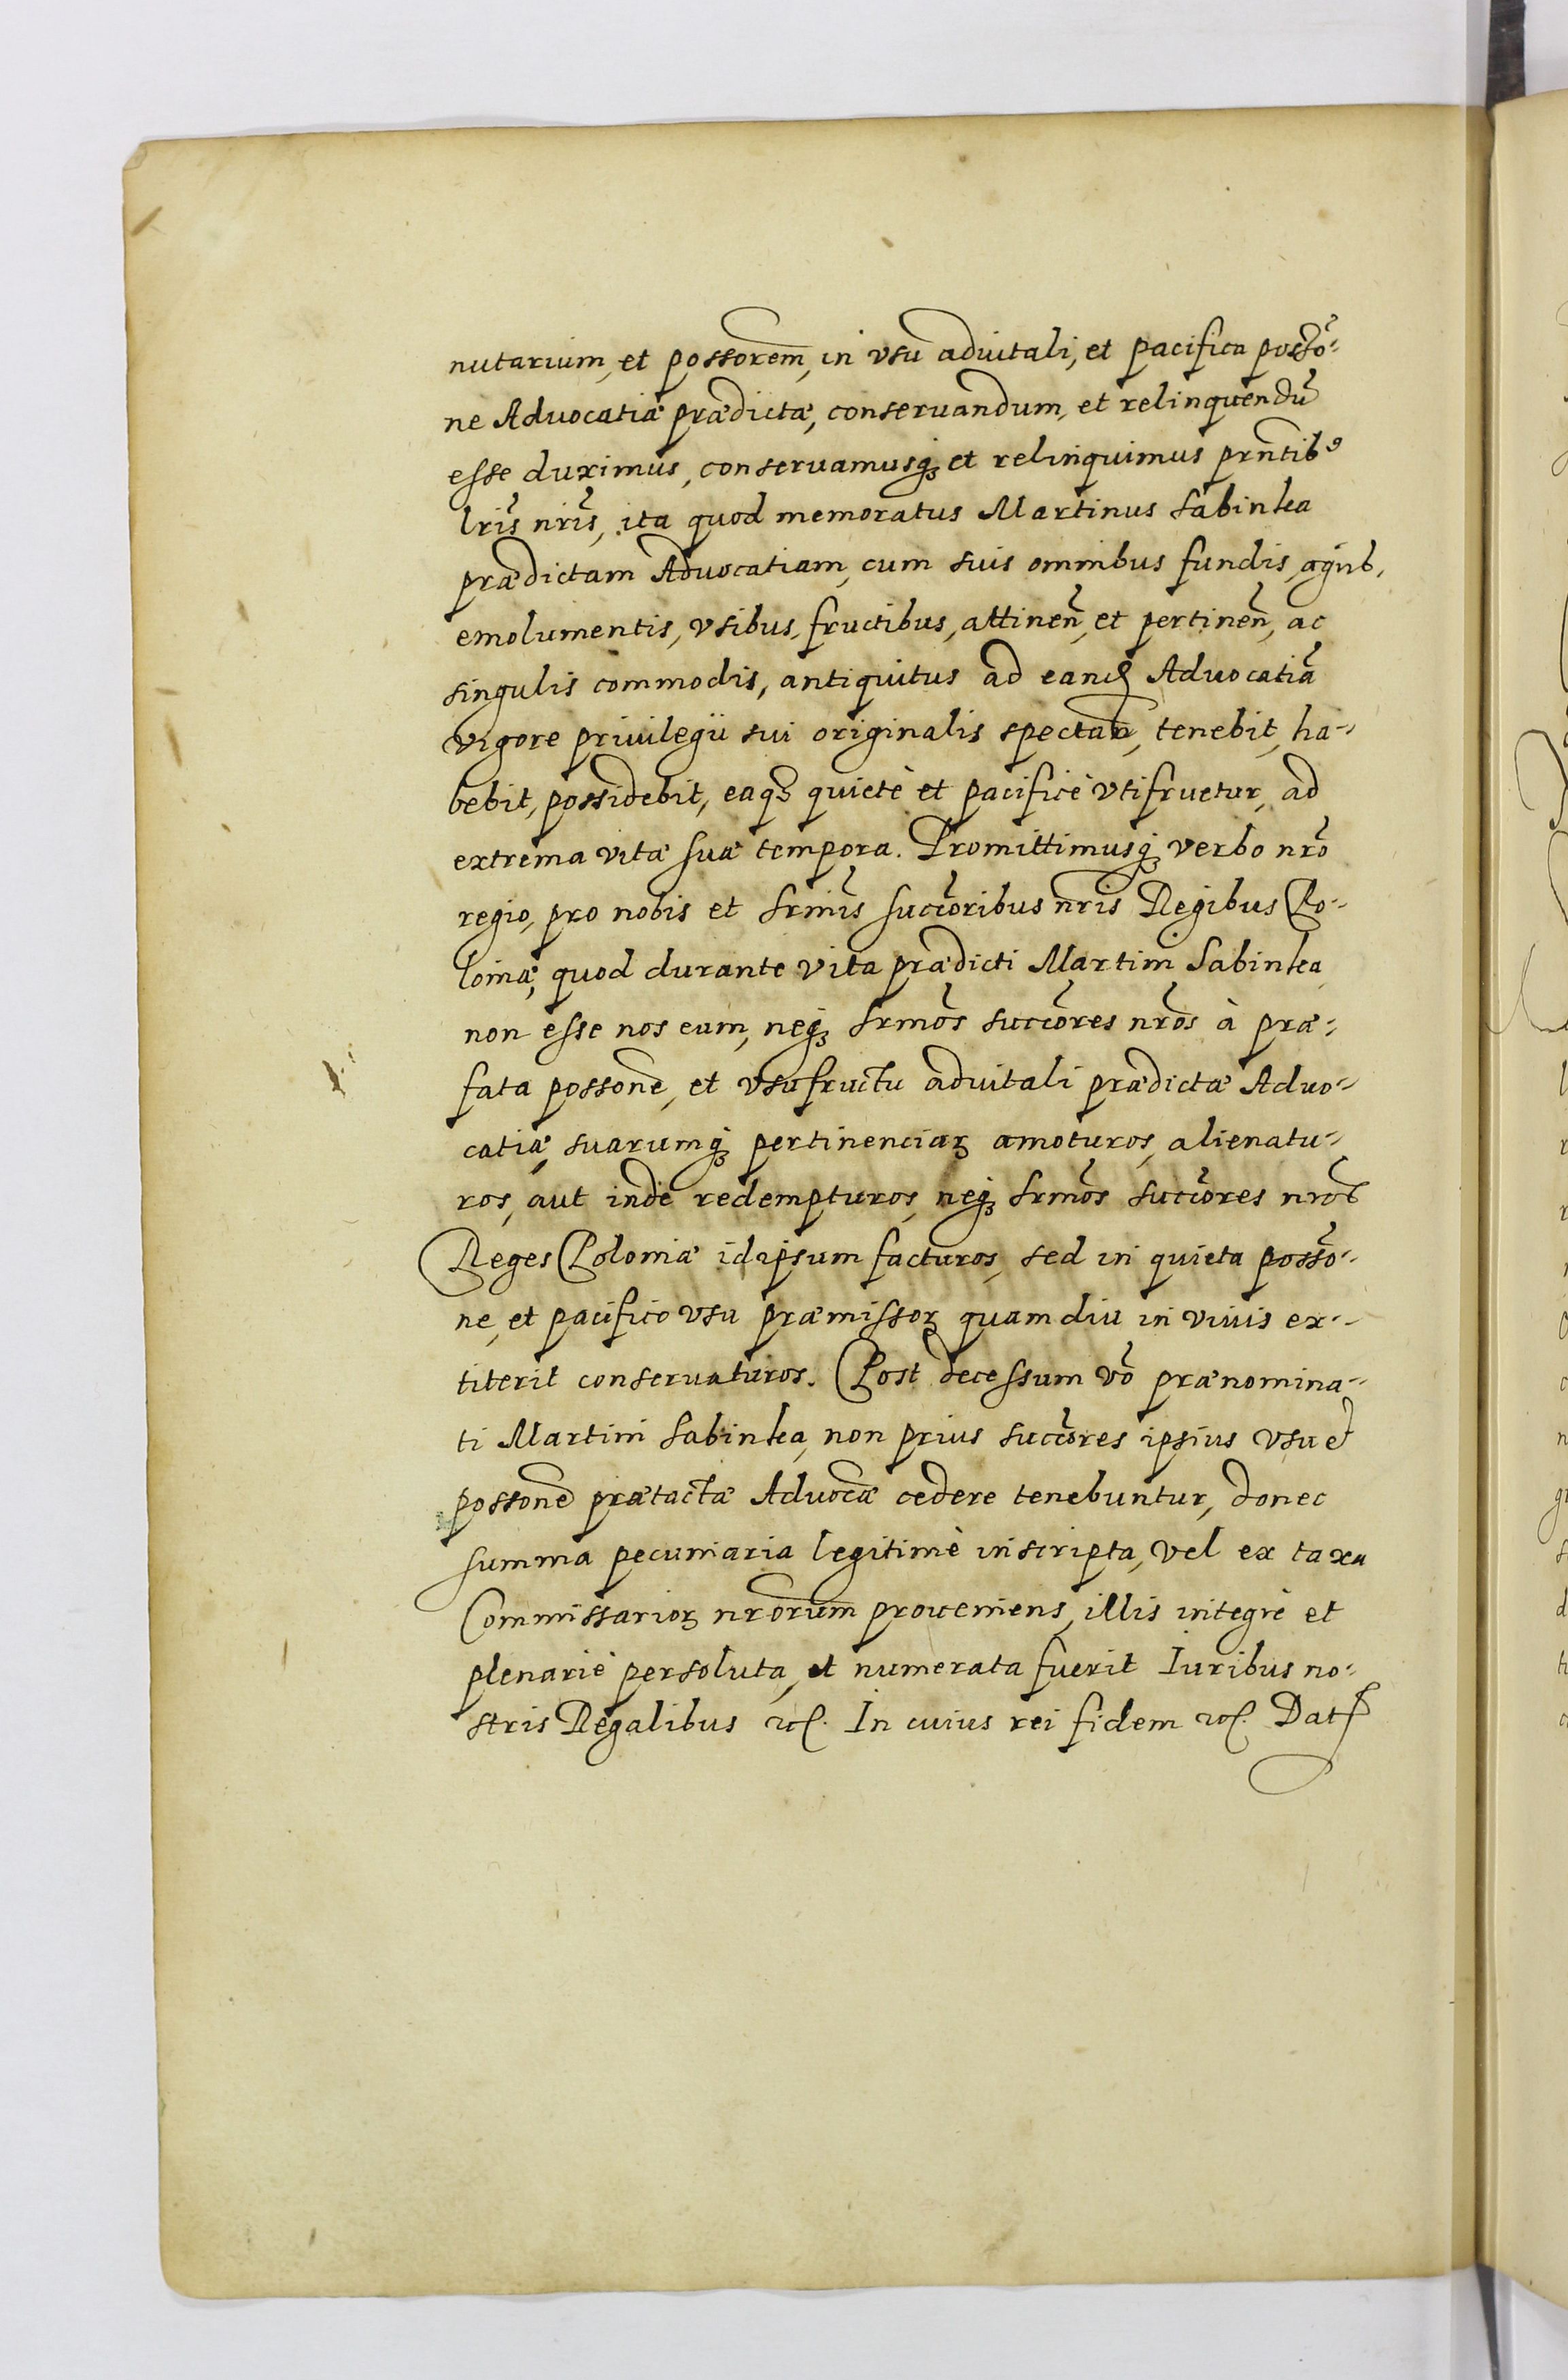 nutarium, et possorem, in vsu aduitali, et pacifica possõ-
ne Aduocatiæ prædictæ, conseruandum, et relinquendũ
esse duximus, conseruamusq; et relinquimus prñtibꝰ
lrĩs nrĩs, ita quod memoratus Martinus Sabinka
prædictam Aduocatiam, cum suis omnibus fundis, agris,
emolumentis, vsibus, fructibus, attineñ, et pertineñ, ac
singulis commodis, antiquitus ad eand Aduocatiã
vigore priuilegii sui originalis spectañ, tenebit, ha-
bebit, possidebit, eaq; quietè et pacificè vtifruetur, ad
extrema vitæ suæ tempora. Promittimusq; verbo nrõ
regio, pro nobis et Srmĩs succõribus nrĩs Regibus Po-
loniæ, quod durante vita prædicti Martini Sabinka
non esse nos eum, neq; Srmõs succõres nrõs à præ-
fata possone, et vsufructu aduitali prædictæ Aduo-
catiæ, suarumq; pertinenciaꝝ amoturos, alienatu-
ros, aut inde redempturos, neq; Srmõs succõres nrõs
Reges Poloniæ idipsum facturos, sed in quieta possõ-
ne, et pacifico vsu præmissoꝝ quamdiu in viuis ex-
titerit conseruaturos. Post decessum võ prænomina-
ti Martini Sabinka, non prius succõres ipsius vsu et
possone prætactæ Aduocæ cedere tenebuntur, donec
summa pecuniaria legitimè inscripta, vel ex taxa
Commissarioꝝ nrorum proueniens, illis integrè et
plenariè persoluta, et numerata fuerit Iuribus no-
stris Regalibus etc. In cuius rei fidem etc. Dat